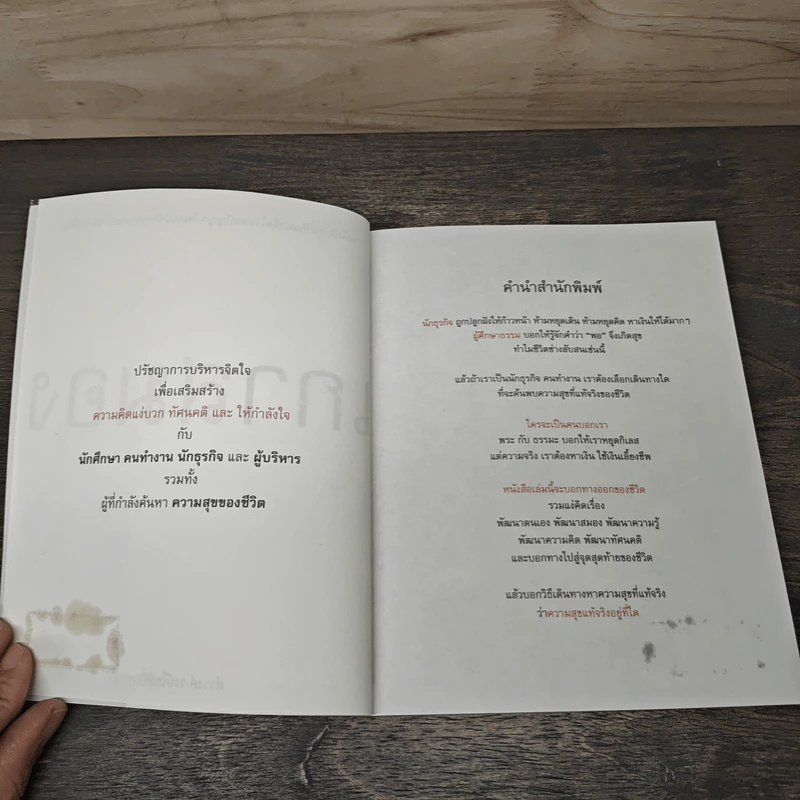 ปรัชญาการบริหารจิตใจ
เพื่อเสริมสร้าง
ความคิดแง่บวก ทัศนคติ และ ให้กำลังใจ
กับ
นักศึกษา คนทำงาน นักธุรกิจ และ ผู้บริหาร
รวมทั้ง
ผู้ที่กำลังค้นหา ความสุขของชีวิต
คำนำสำนักพิมพ์
นักธุรกิจ ถูกปลูกฝังให้ก้าวหน้า ห้ามหยุดเดิน ห้ามหยุดคิด หาเงินให้ได้มากๆ
ผู้ศึกษาธรรม บอกให้รู้จักคำว่า "พอ" จึงเกิดสุข
ทำไมชีวิตช่างสับสนเช่นนี้
แล้วถ้าเราเป็นนักธุรกิจ คนทำงาน เราต้องเลือกเดินทางใด
ที่จะค้นพบความสุขที่แท้จริงของชีวิต
ใครจะเป็นคนบอกเรา
พระ กับ ธรรมะ บอกให้เราหยุดกิเลส
แต่ความจริง เราต้องหาเงิน ใช้เงินเลี้ยงชีพ
หนังสือเล่มนี้จะบอกทางออกของชีวิต
รวมแง่คิดเรื่อง
พัฒนาตนเอง พัฒนาสมอง พัฒนาความรู้
พัฒนาความคิด พัฒนาทัศนคติ
และบอกทางไปสู่จุดสุดท้ายของชีวิต
แล้วบอกวิธีเดินทางหาความสุขที่แท้จริง
ว่าความสุขแท้จริงอยู่ที่ใด